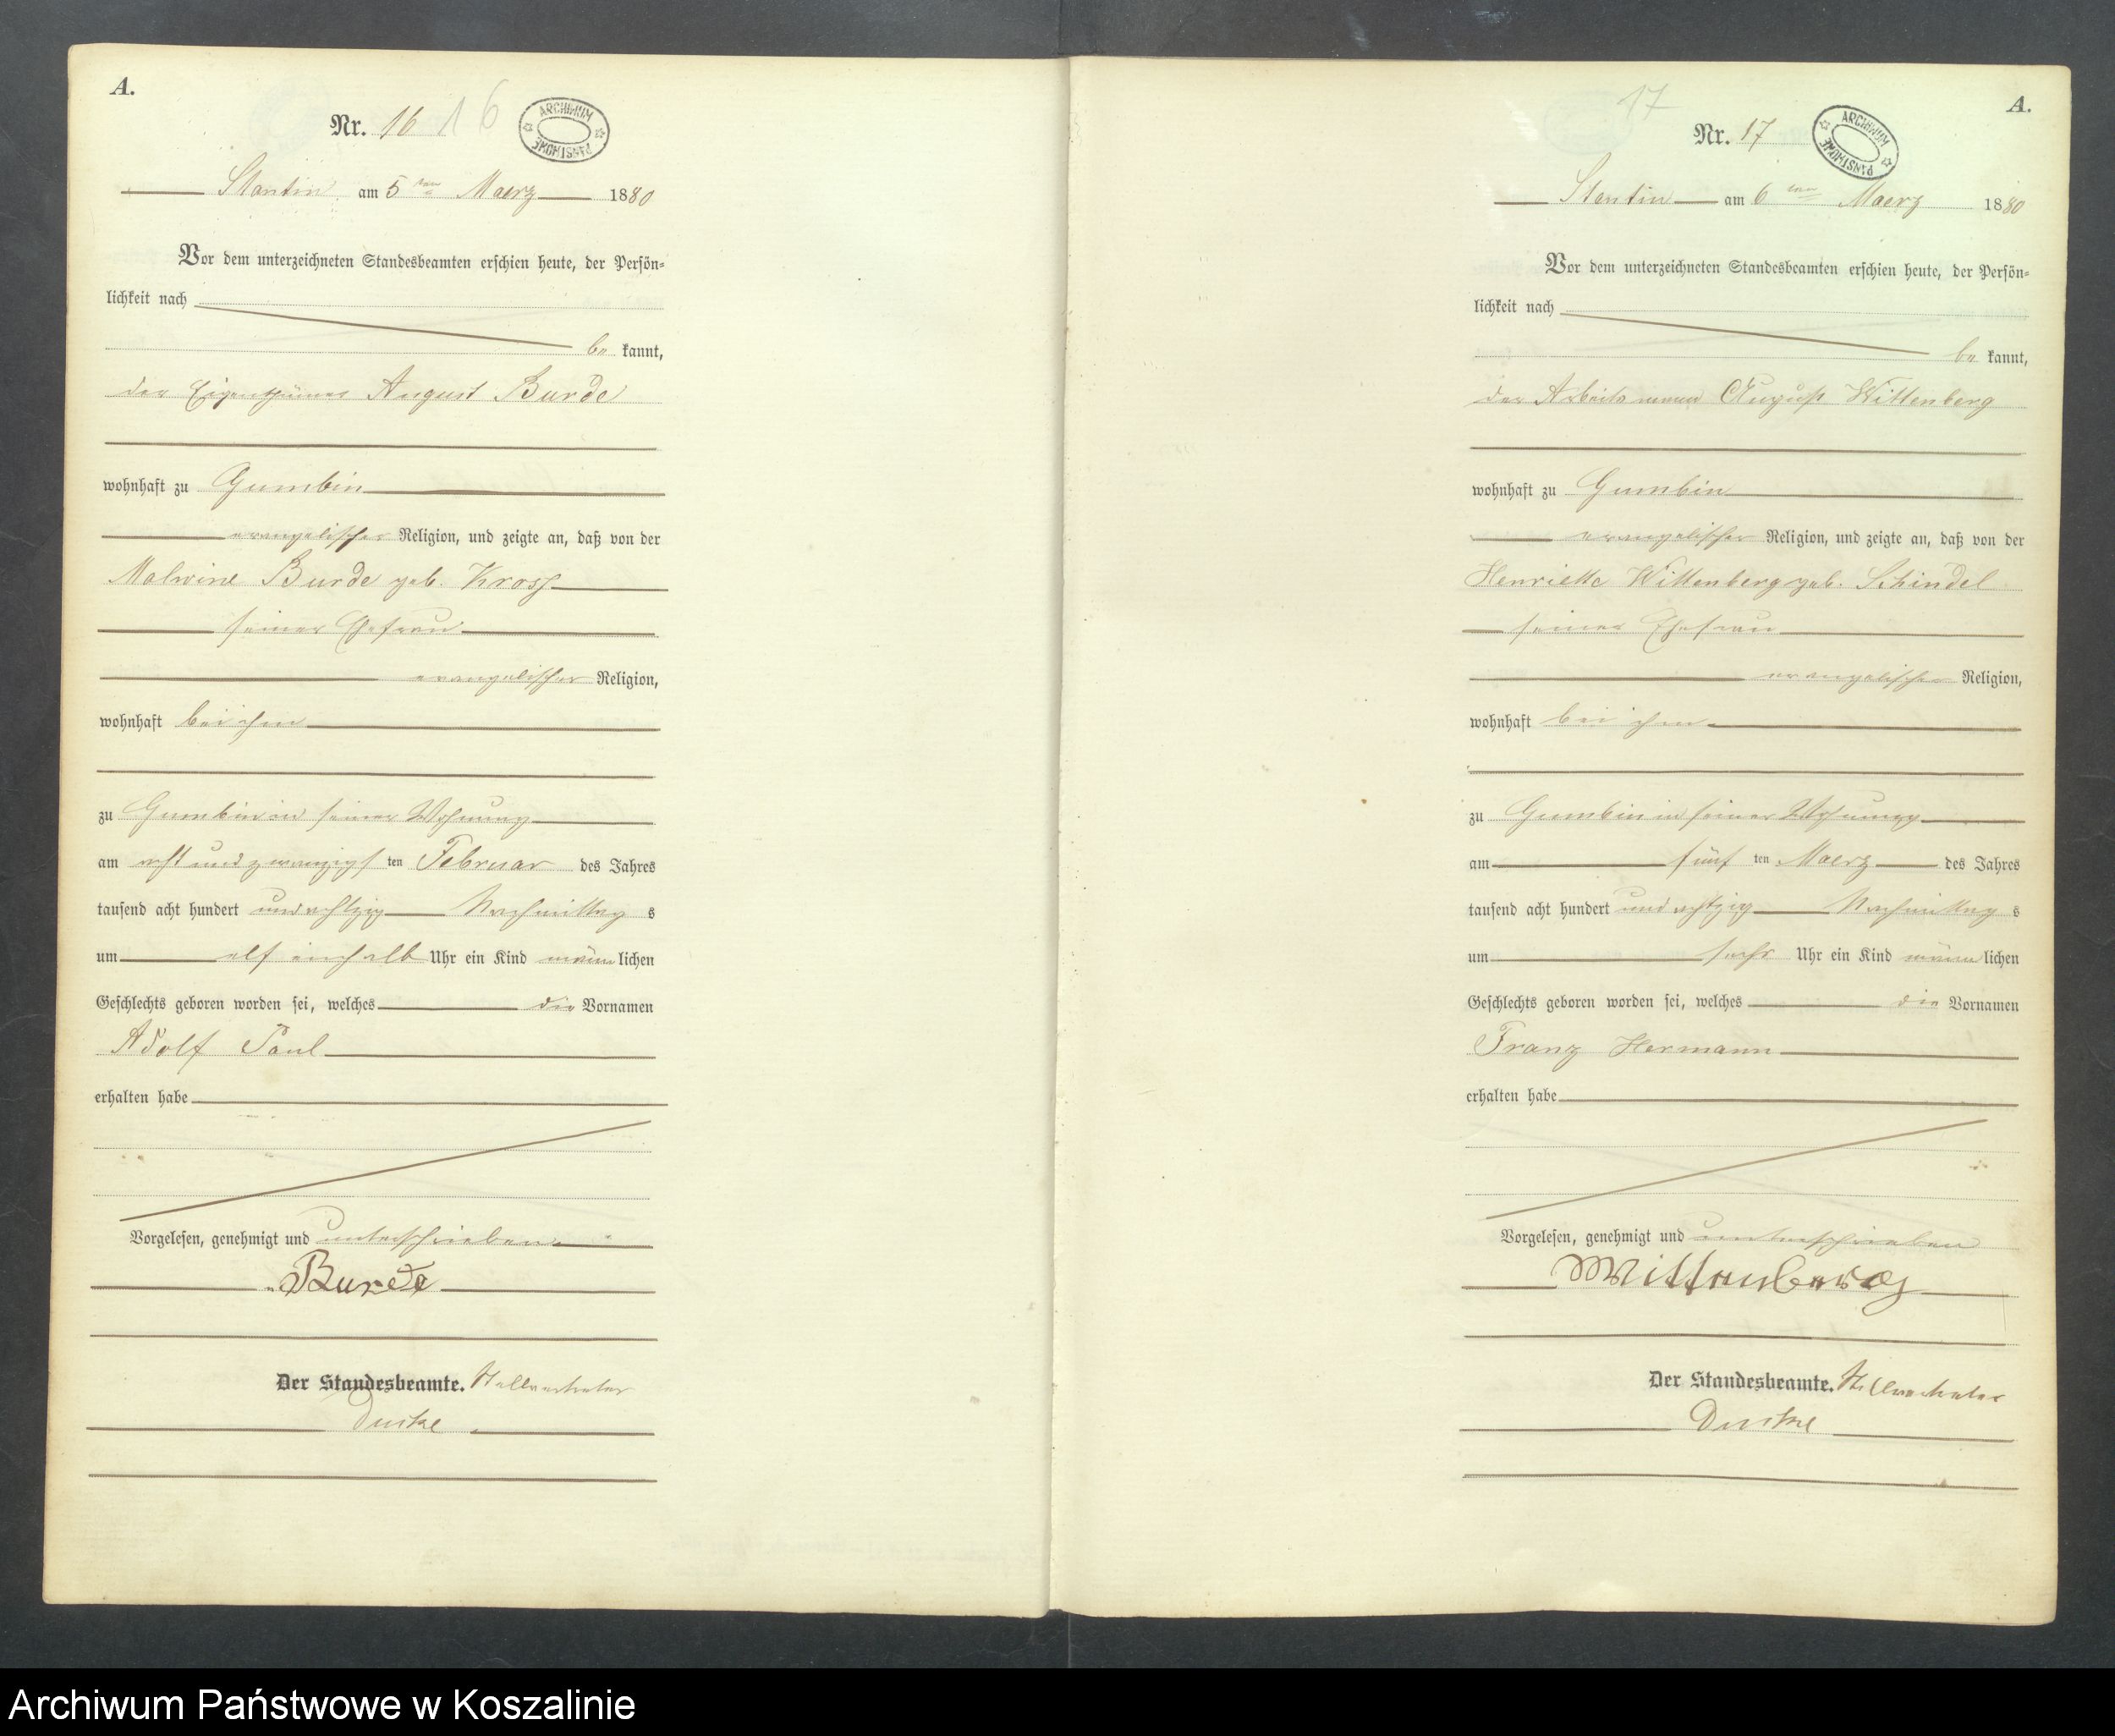 A.
Nr. 16 16
ARCHIWUM PAŃSTWOWE
Stantin am 5ten Maerz 1880
Vor dem unterzeichneten Standesbeamten erschien heute, der Persön-
lichkeit nach
be kannt,
der Eigenthümer August Burde
wohnhaft zu Gumbin
evangelischer Religion, und zeigte an, daß von der
Malwine Burde geb. Kross
seiner Ehefrau
evangelischer Religion,
wohnhaft bei ihm
zu Gumbin in seiner Wohnung
am acht und zwanzigs ten Februar des Jahres
tausend acht hundert und achtzig Nachmittag s
um elf einhalb Uhr ein Kind männ lichen
Geschlechts geboren worden sei, welches die Vornamen
Adolf Paul
erhalten habe
Vorgelesen, genehmigt und unterschrieben
Burde
Der Standesbeamte. Stellvertreter
A.
17
Nr. 17
ARCHIWUM PAŃSTWOWE
Stantin am 6ten Maerz 1880
Vor dem unterzeichneten Standesbeamten erschien heute, der Persön-
lichkeit nach
be kannt,
der Arbeitsmann August Wittenberg
wohnhaft zu Gumbin
evangelischer Religion, und zeigte an, daß von der
Henriette Wittenberg geb. Schindel
seiner Ehefrau
evangelischer Religion,
wohnhaft bei ihm
zu Gumbin in seiner Wohnung
am fünf ten Maerz des Jahres
tausend acht hundert und achtzig Nachmittag s
um sechs Uhr ein Kind männ lichen
Geschlechts geboren worden sei, welches die Vornamen
Franz Hermann
erhalten habe
Vorgelesen, genehmigt und unterschrieben
Wittenberg
Der Standesbeamte. Stellvertreter
Archiwum Państwowe w Koszalinie